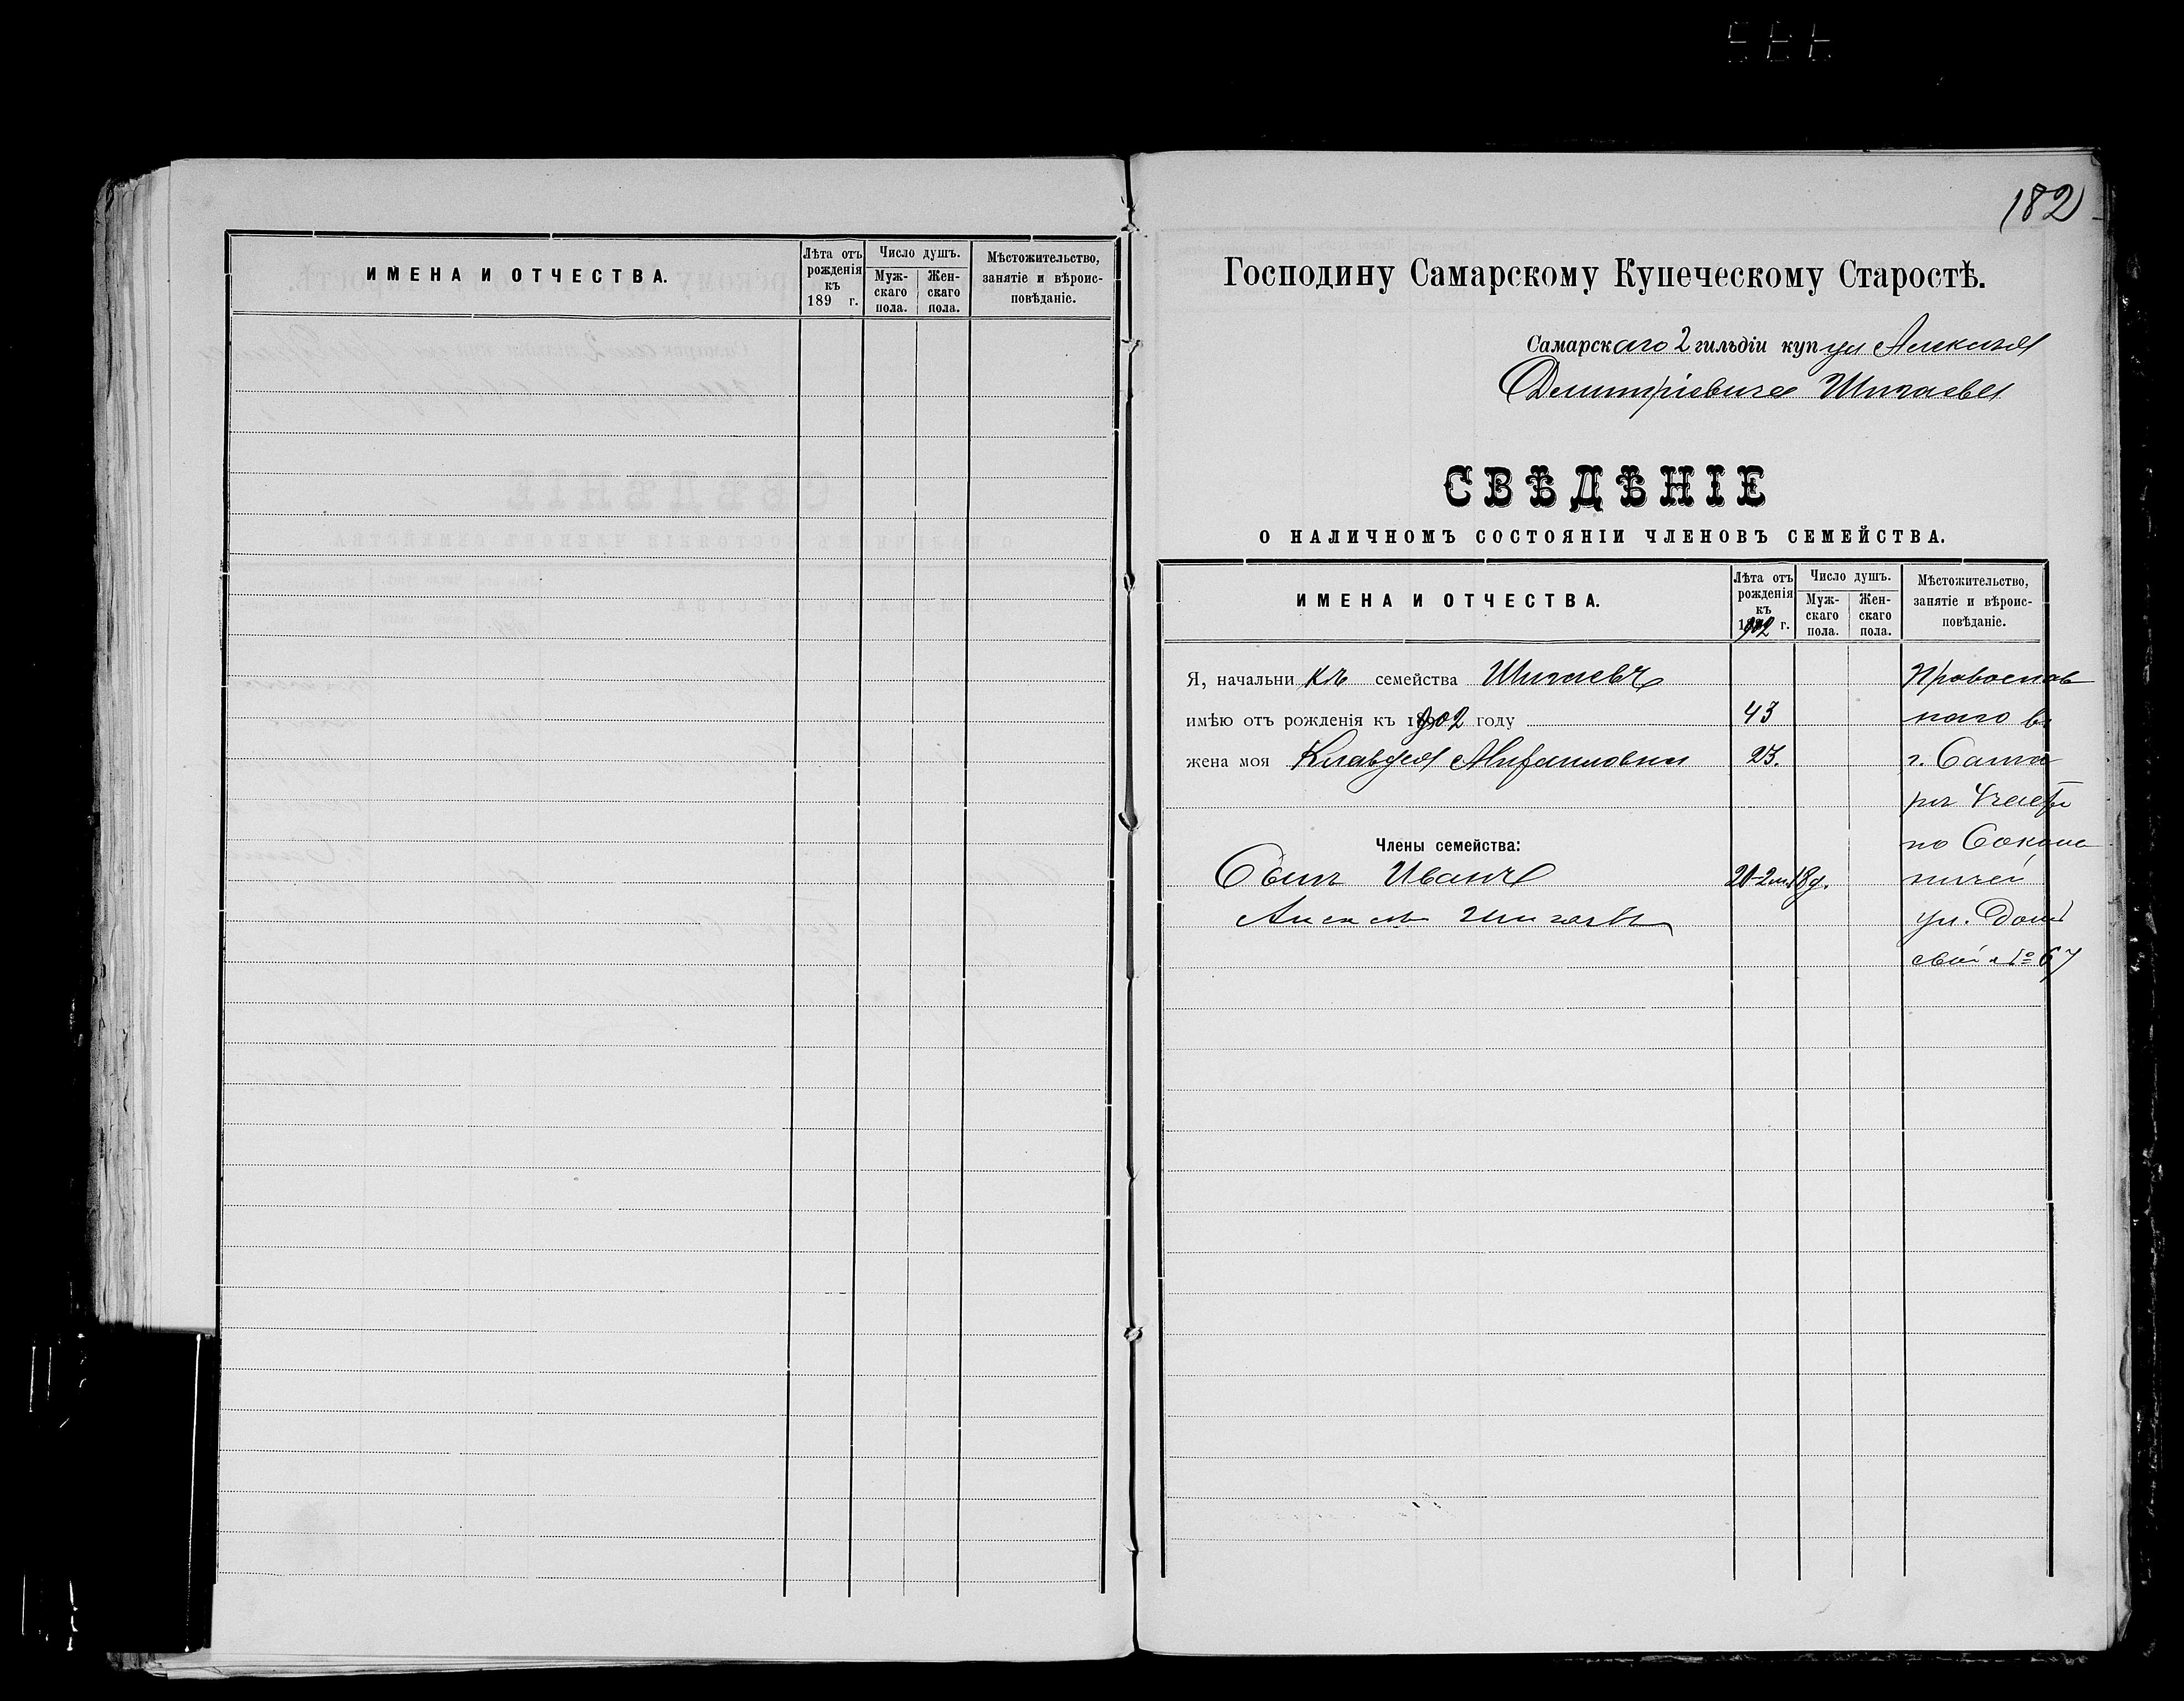 ИМЕНА И ОТЧЕСТВА.
Лѣта отъ рожденія къ 189 г.
Число душъ.
Мужскаго пола.
Женскаго пола.
Мѣстожительство, занятіе и вѣроисповѣданіе.
182
Господину Самарскому Купеческому Старостѣ.
Самарскаго 2 гильдіи купца Алексѣя
Дмитріевича Шигаева
СВѢДѢНІЕ
О НАЛИЧНОМЪ СОСТОЯНІИ ЧЛЕНОВЪ СЕМЕЙСТВА.
ИМЕНА И ОТЧЕСТВА.
Лѣта отъ рожденія къ 1902 г.
Число душъ.
Мужскаго пола.
Женскаго пола.
Мѣстожительство, занятіе и вѣроисповѣданіе.
Я, начальникъ семейства Шигаевъ Провослав
имѣю отъ рожденія къ 1902 году 43 наго въ
жена моя Клавдея Михаиловна 23. г. Сама
рѣ 4 части
Члены семейства: по Соколь
Сынъ Иванъ 20-2м.18д. ничей
Алексѣй Шигаевъ ул. Домъ
свой № 67